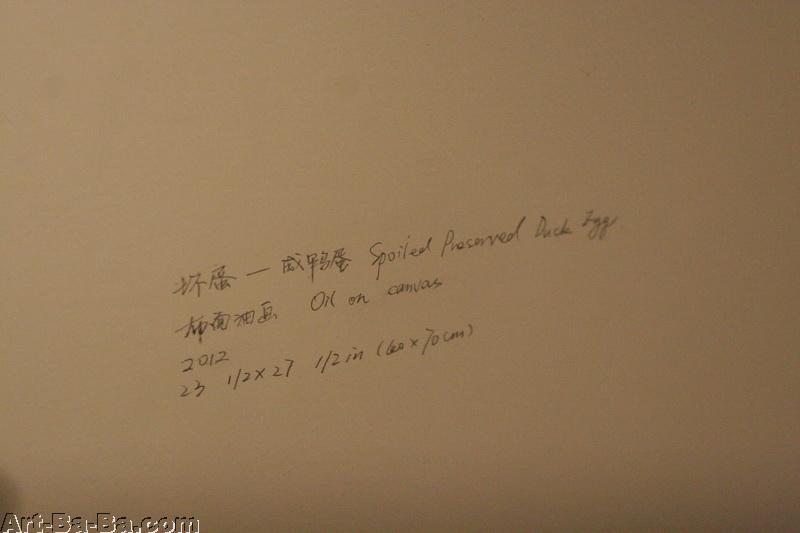 坏蛋 — 咸鸭蛋 Spoiled Preserved Duck Egg.
布面油画 Oil on canvas
2012
23 1/2 x 27 1/2 in (60 x 70 cm)
Art-Ba-Ba.com